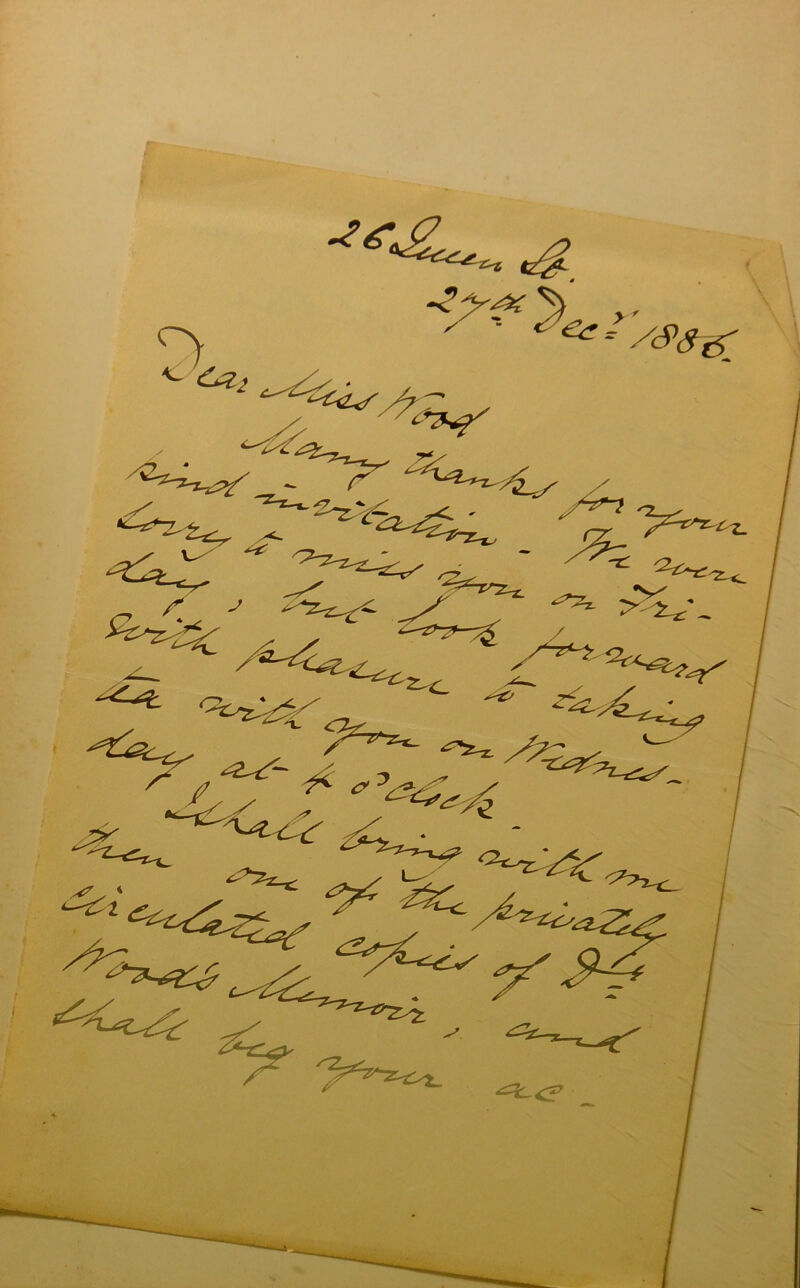 26 Queen St.
27th Decr 1886.
Dear Miss Wood
Many thanks for your
kind invitation - We were
sorry to miss you on Fri-
day, but look forward
with pleasure to taking
tea with you on Wednes-
day at 4 o'clock.
I shall bring with me
then one of the privately
circulated copies of Dr
Wood's Memoir, and
shall beg your ac-